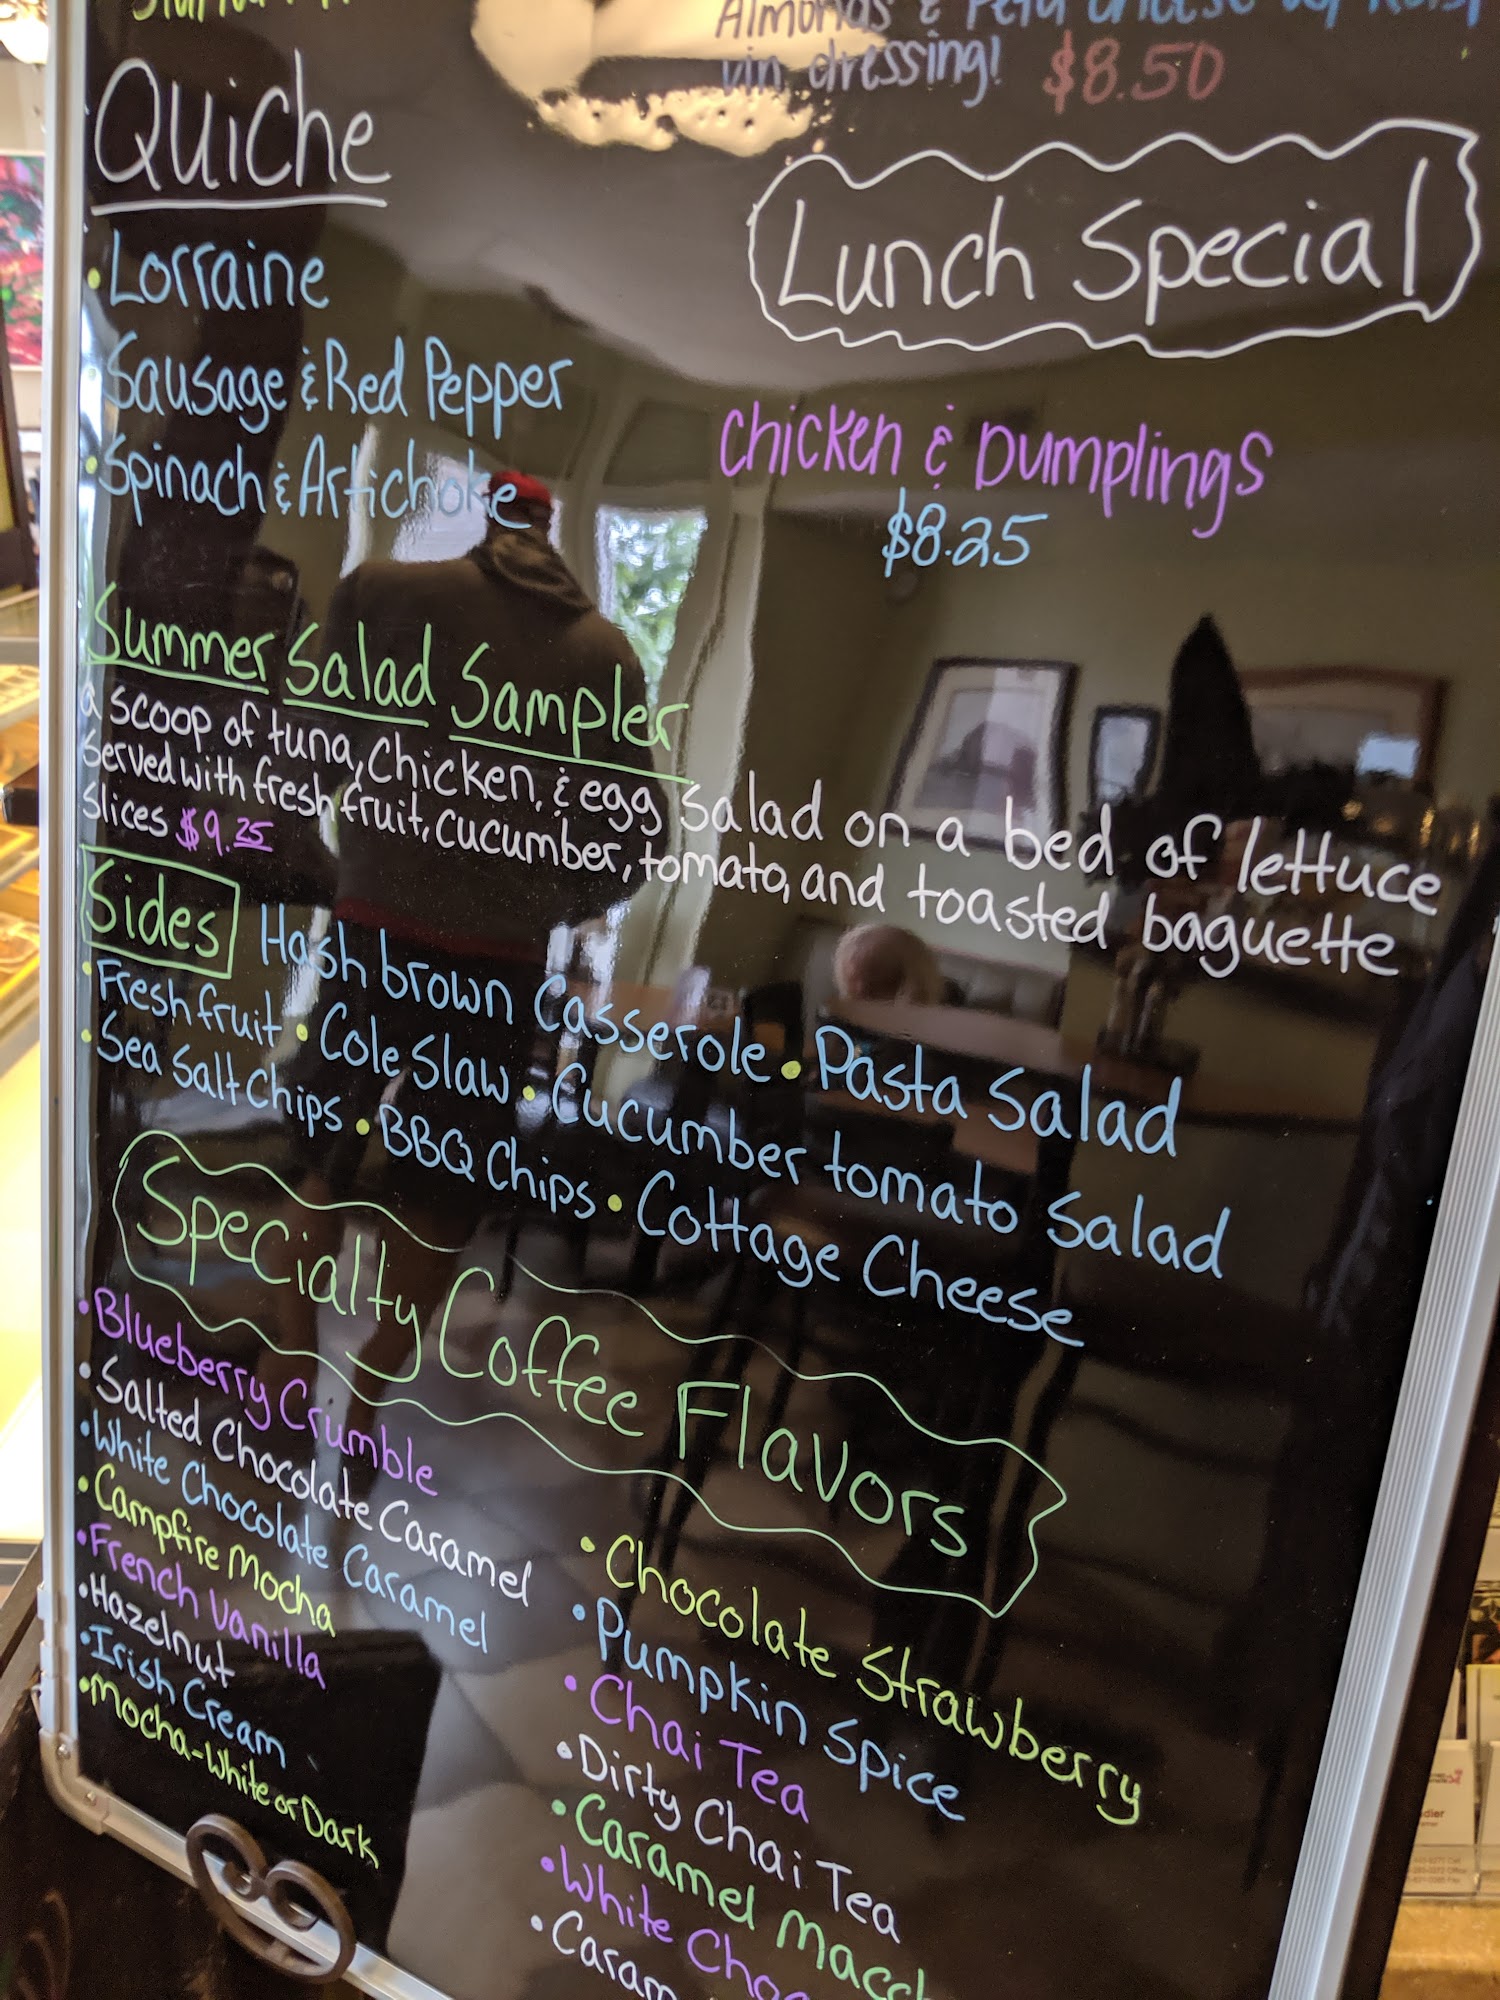 Almonds & Feta cheese w/
vin. dressing! $8.50
Quiche
• Lorraine
• Sausage & Red Pepper
• Spinach & Artichoke
Lunch Special
Chicken & Dumplings
$8.25
Summer Salad Sampler
a scoop of tuna, chicken, & egg salad on a bed of lettuce
served with fresh fruit, cucumber, tomato, and toasted baguette
slices $9.25
Sides Hash brown Casserole • Pasta Salad
• Fresh fruit • Cole Slaw • Cucumber tomato Salad
• Sea Salt Chips • BBQ Chips • Cottage Cheese
Specialty Coffee Flavors
• Blueberry Crumble
• Salted Chocolate Caramel
• White Chocolate Caramel
• Campfire Mocha
• French Vanilla
• Hazelnut
• Irish Cream
• Mocha-White or Dark
• Chocolate Strawberry
• Pumpkin Spice
• Chai Tea
• Dirty Chai Tea
• Caramel Macch
• White Choc
• Caram